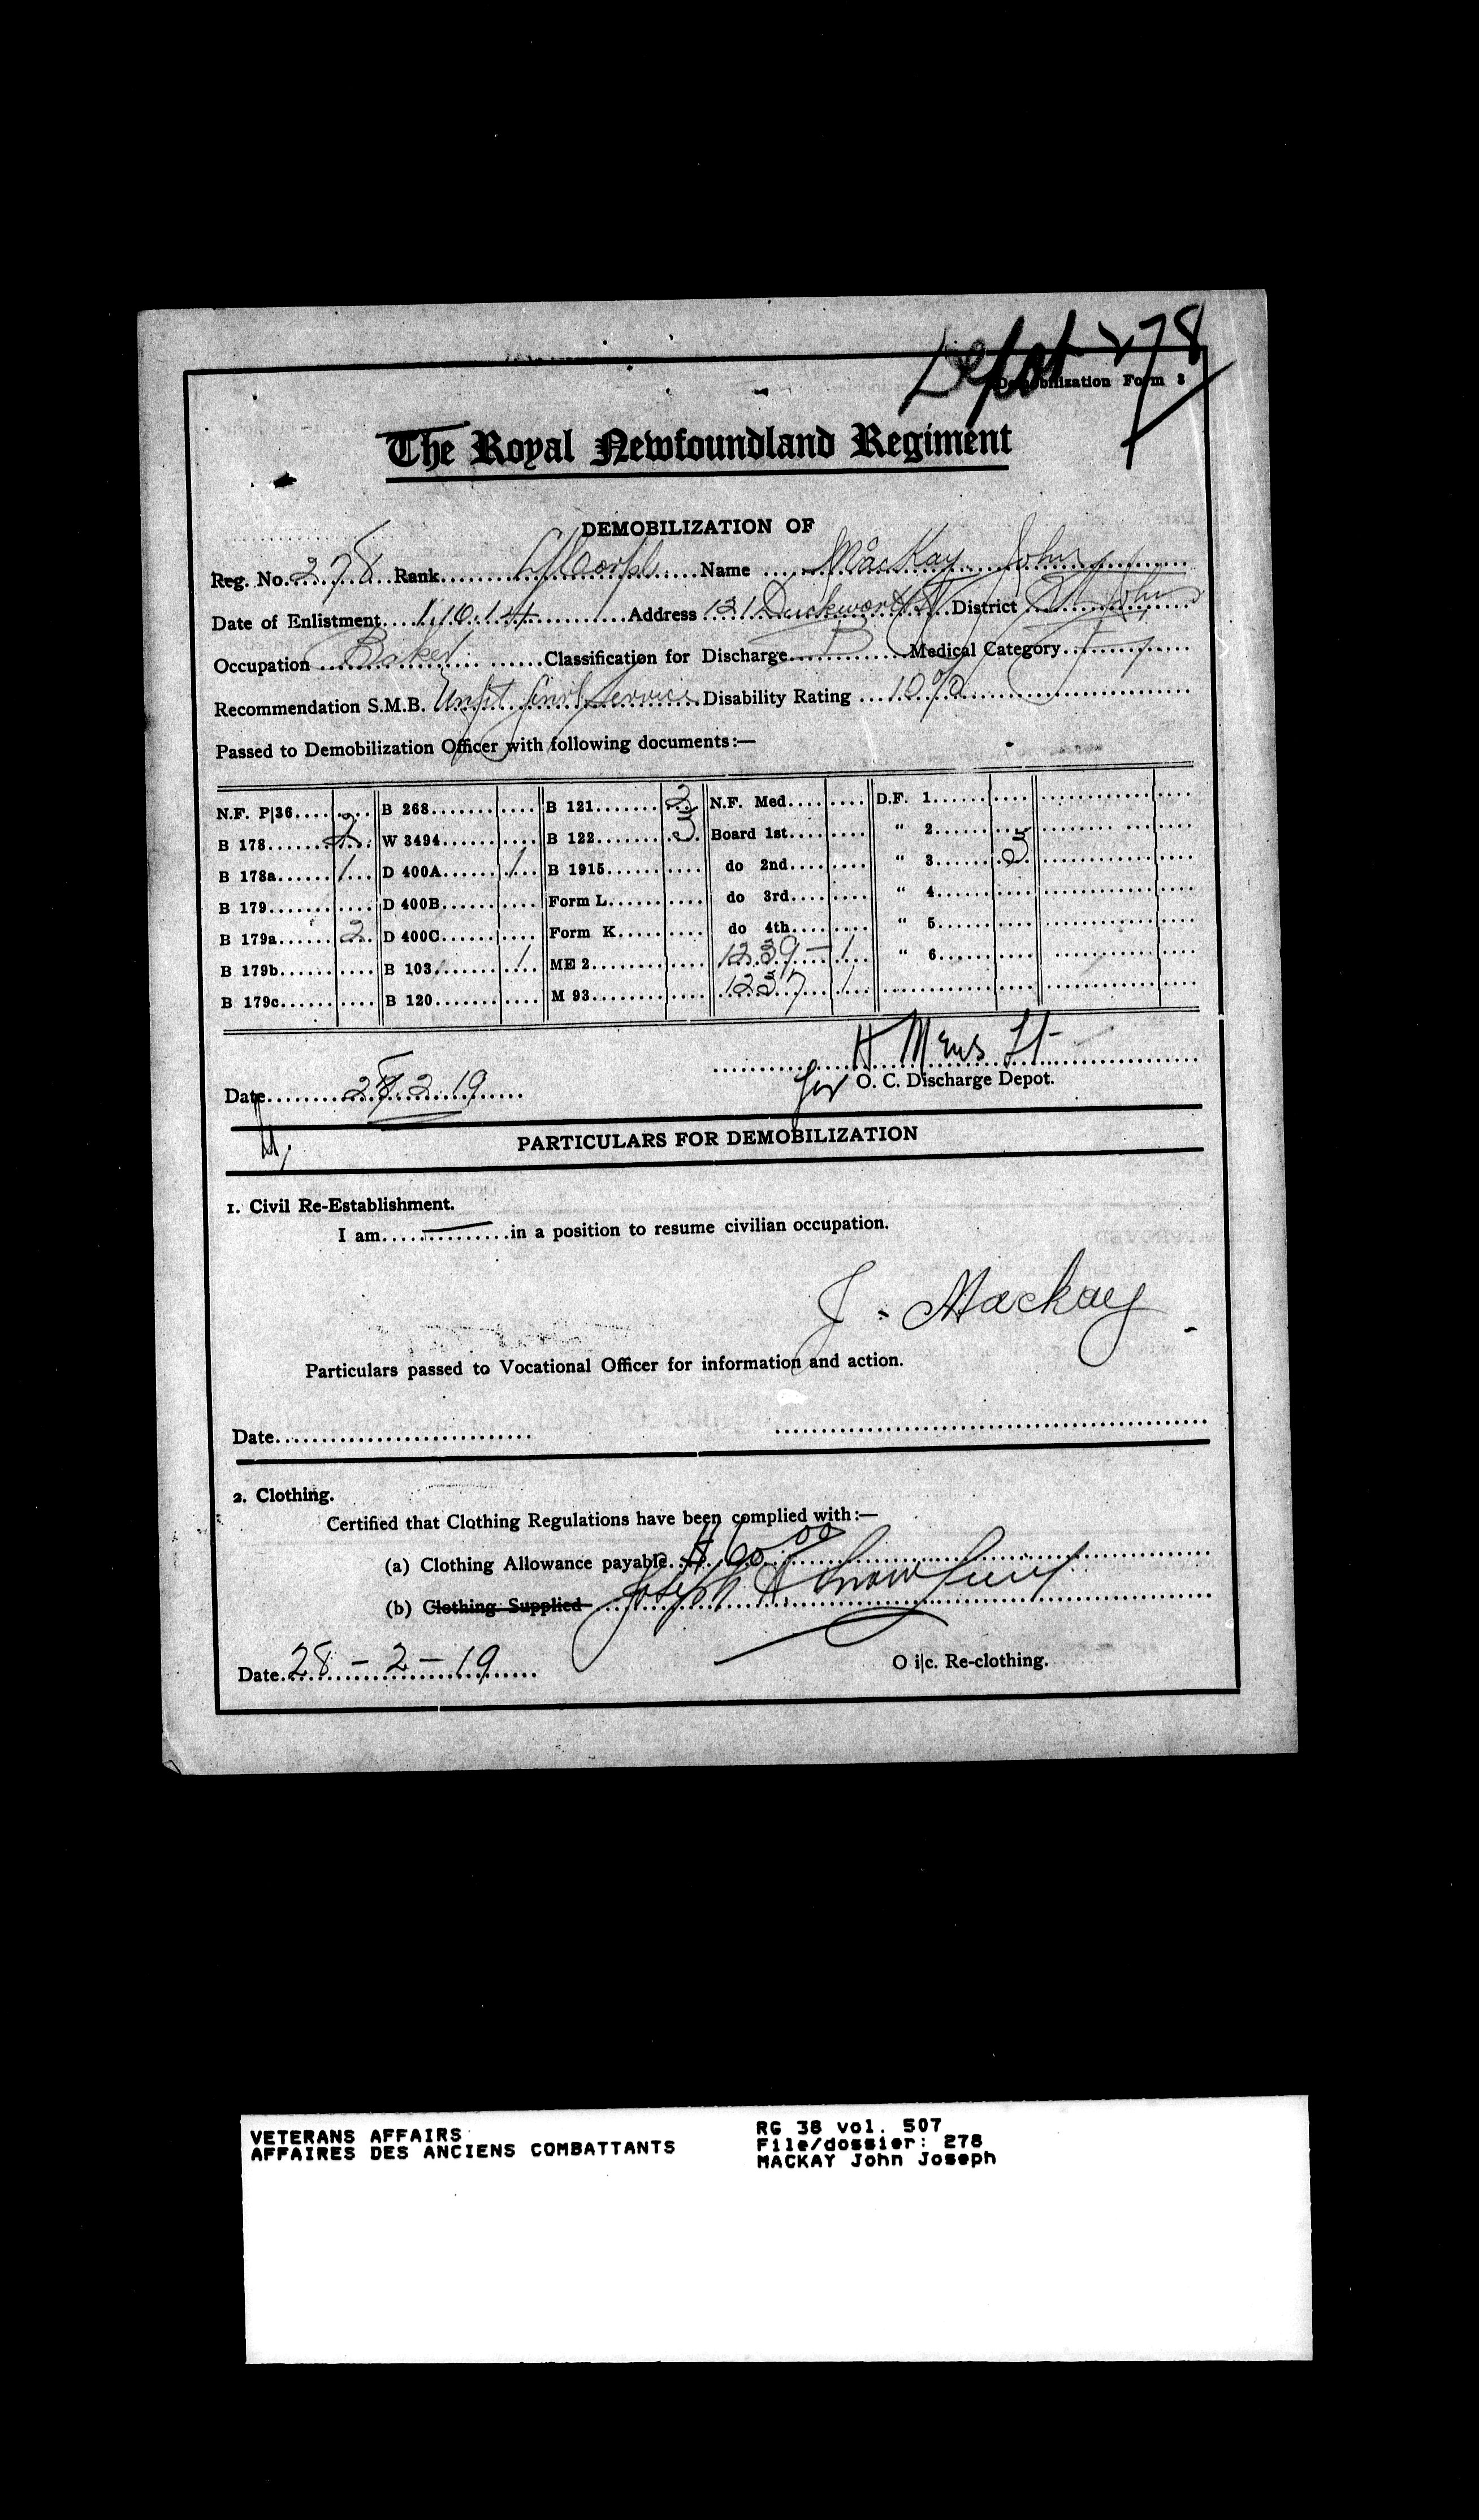 Depot 278
Demobilization Form 2
The Royal Newfoundland Regiment
DEMOBILIZATION OF
Reg. No. 278 Rank L/Corpl. Name MacKay John
Date of Enlistment 1.10.14 Address 121 Duckworth St District St John's
Occupation Baker Classification for Discharge B Medical Category
Recommendation S.M.B. Unfit Genl Service Disability Rating 10%
Passed to Demobilization Officer with following documents:—
N.F. P|36 B 268 B 121 2 N.F. Med. D.F. 1
B 178 2 W 3494 B 122 Board 1st " 2
B 178a 1 D 400A 1 B 1915 do 2nd " 3
B 179 D 400B Form L do 3rd " 4
B 179a 2 D 400C Form K do 4th " 5
B 179b B 103 1 ME 2 1239 - 1 " 6
B 179c B 120 M 93 1237 1
Date 28.2.19 for O. C. Discharge Depot.
PARTICULARS FOR DEMOBILIZATION
1. Civil Re-Establishment.
I am in a position to resume civilian occupation.
J. Mackay
Particulars passed to Vocational Officer for information and action.
Date
2. Clothing.
Certified that Clothing Regulations have been complied with:—
(a) Clothing Allowance payable $60.00
(b) Clothing Supplied Joseph A Snow
Date 28-2-19 O i|c. Re-clothing.
VETERANS AFFAIRS
AFFAIRES DES ANCIENS COMBATTANTS
RG 38 vol. 507
File/dossier: 278
MACKAY John Joseph